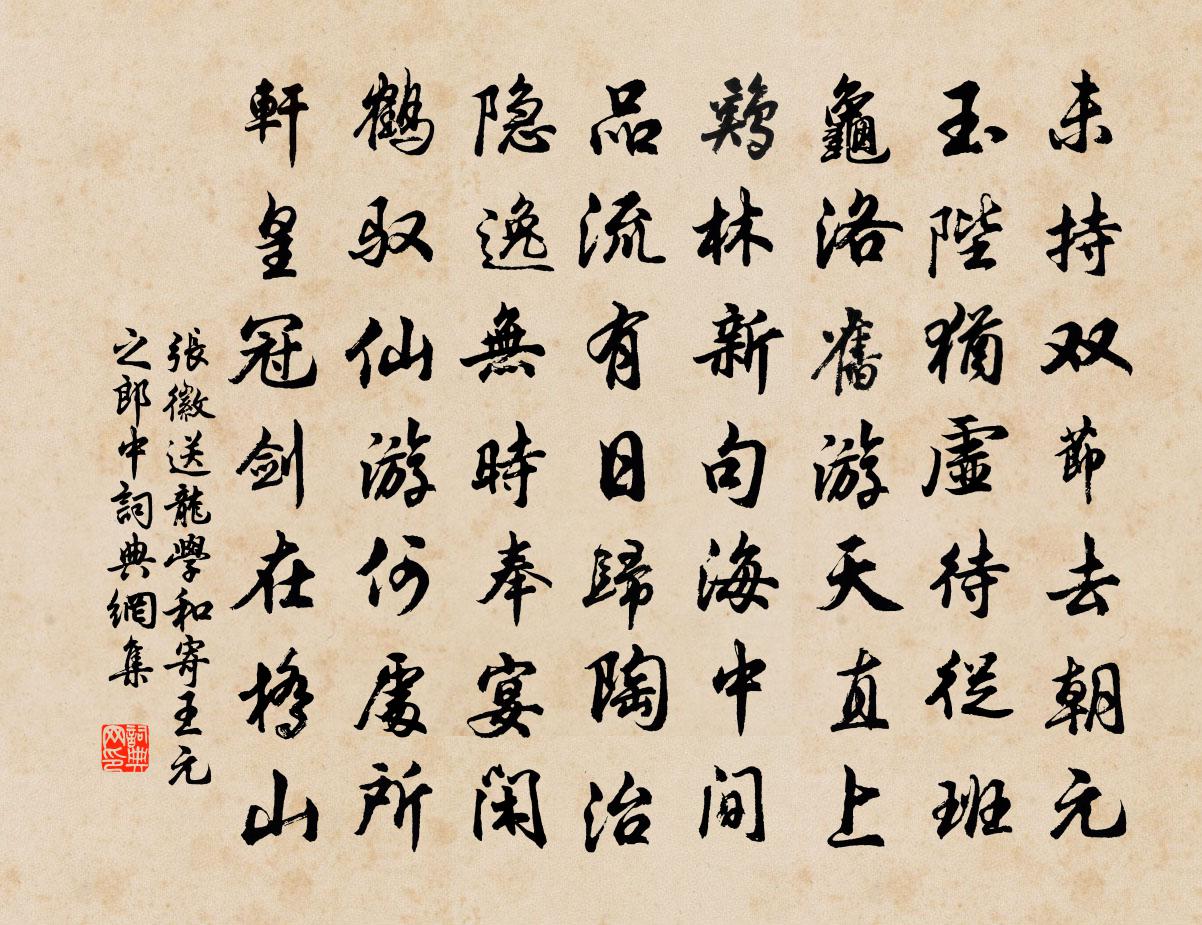 未持双節去朝元
玉陛猶虛待從班
龜洛舊游天直上
鷄林新句海中间
品流有日歸陶冶
隐逸無時奉宴闲
鶴驭仙游何處所
軒皇冠剑在橋山
張徽送龍學和寄王元
之郎中詞典網集
詞典
网印